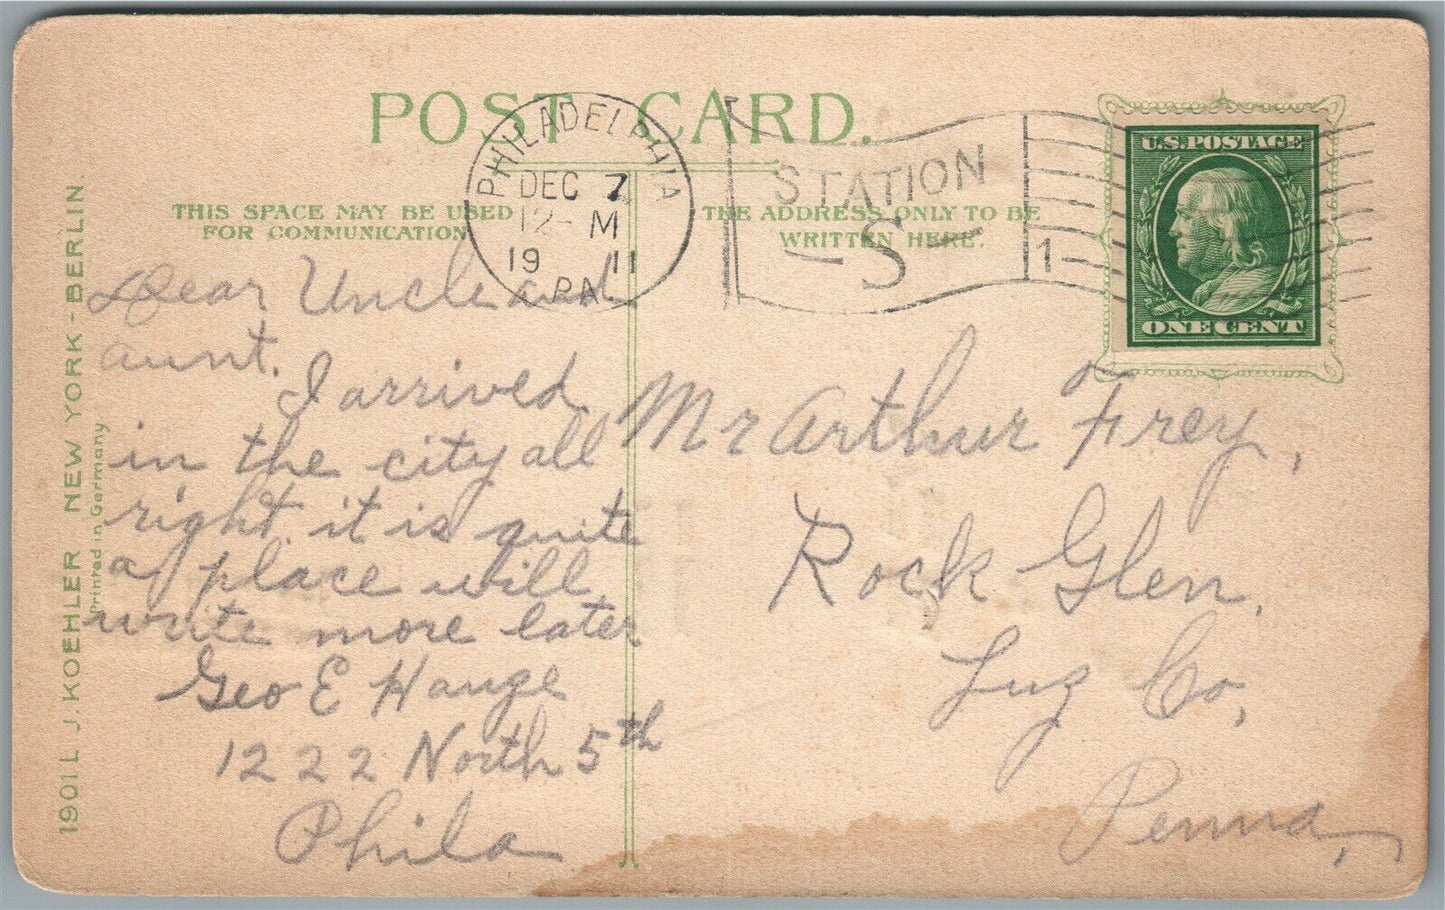 POST CARD.
PHILADELPHIA
DEC 7
12-M
19 11
PA
STATION
-S-
1
U.S. POSTAGE
ONE CENT
THIS SPACE MAY BE USED
FOR COMMUNICATION
THE ADDRESS ONLY TO BE
WRITTEN HERE.
1901 L J. KOEHLER NEW YORK - BERLIN.
Printed in Germany
Dear Uncle and
aunt.
I arrived
in the city all
right. it is quite
a place will
write more later
Geo E Hauze
1222 North 5th
Phila
Mr Arthur Frey,
Rock Glen,
Luz Co,
Penna,